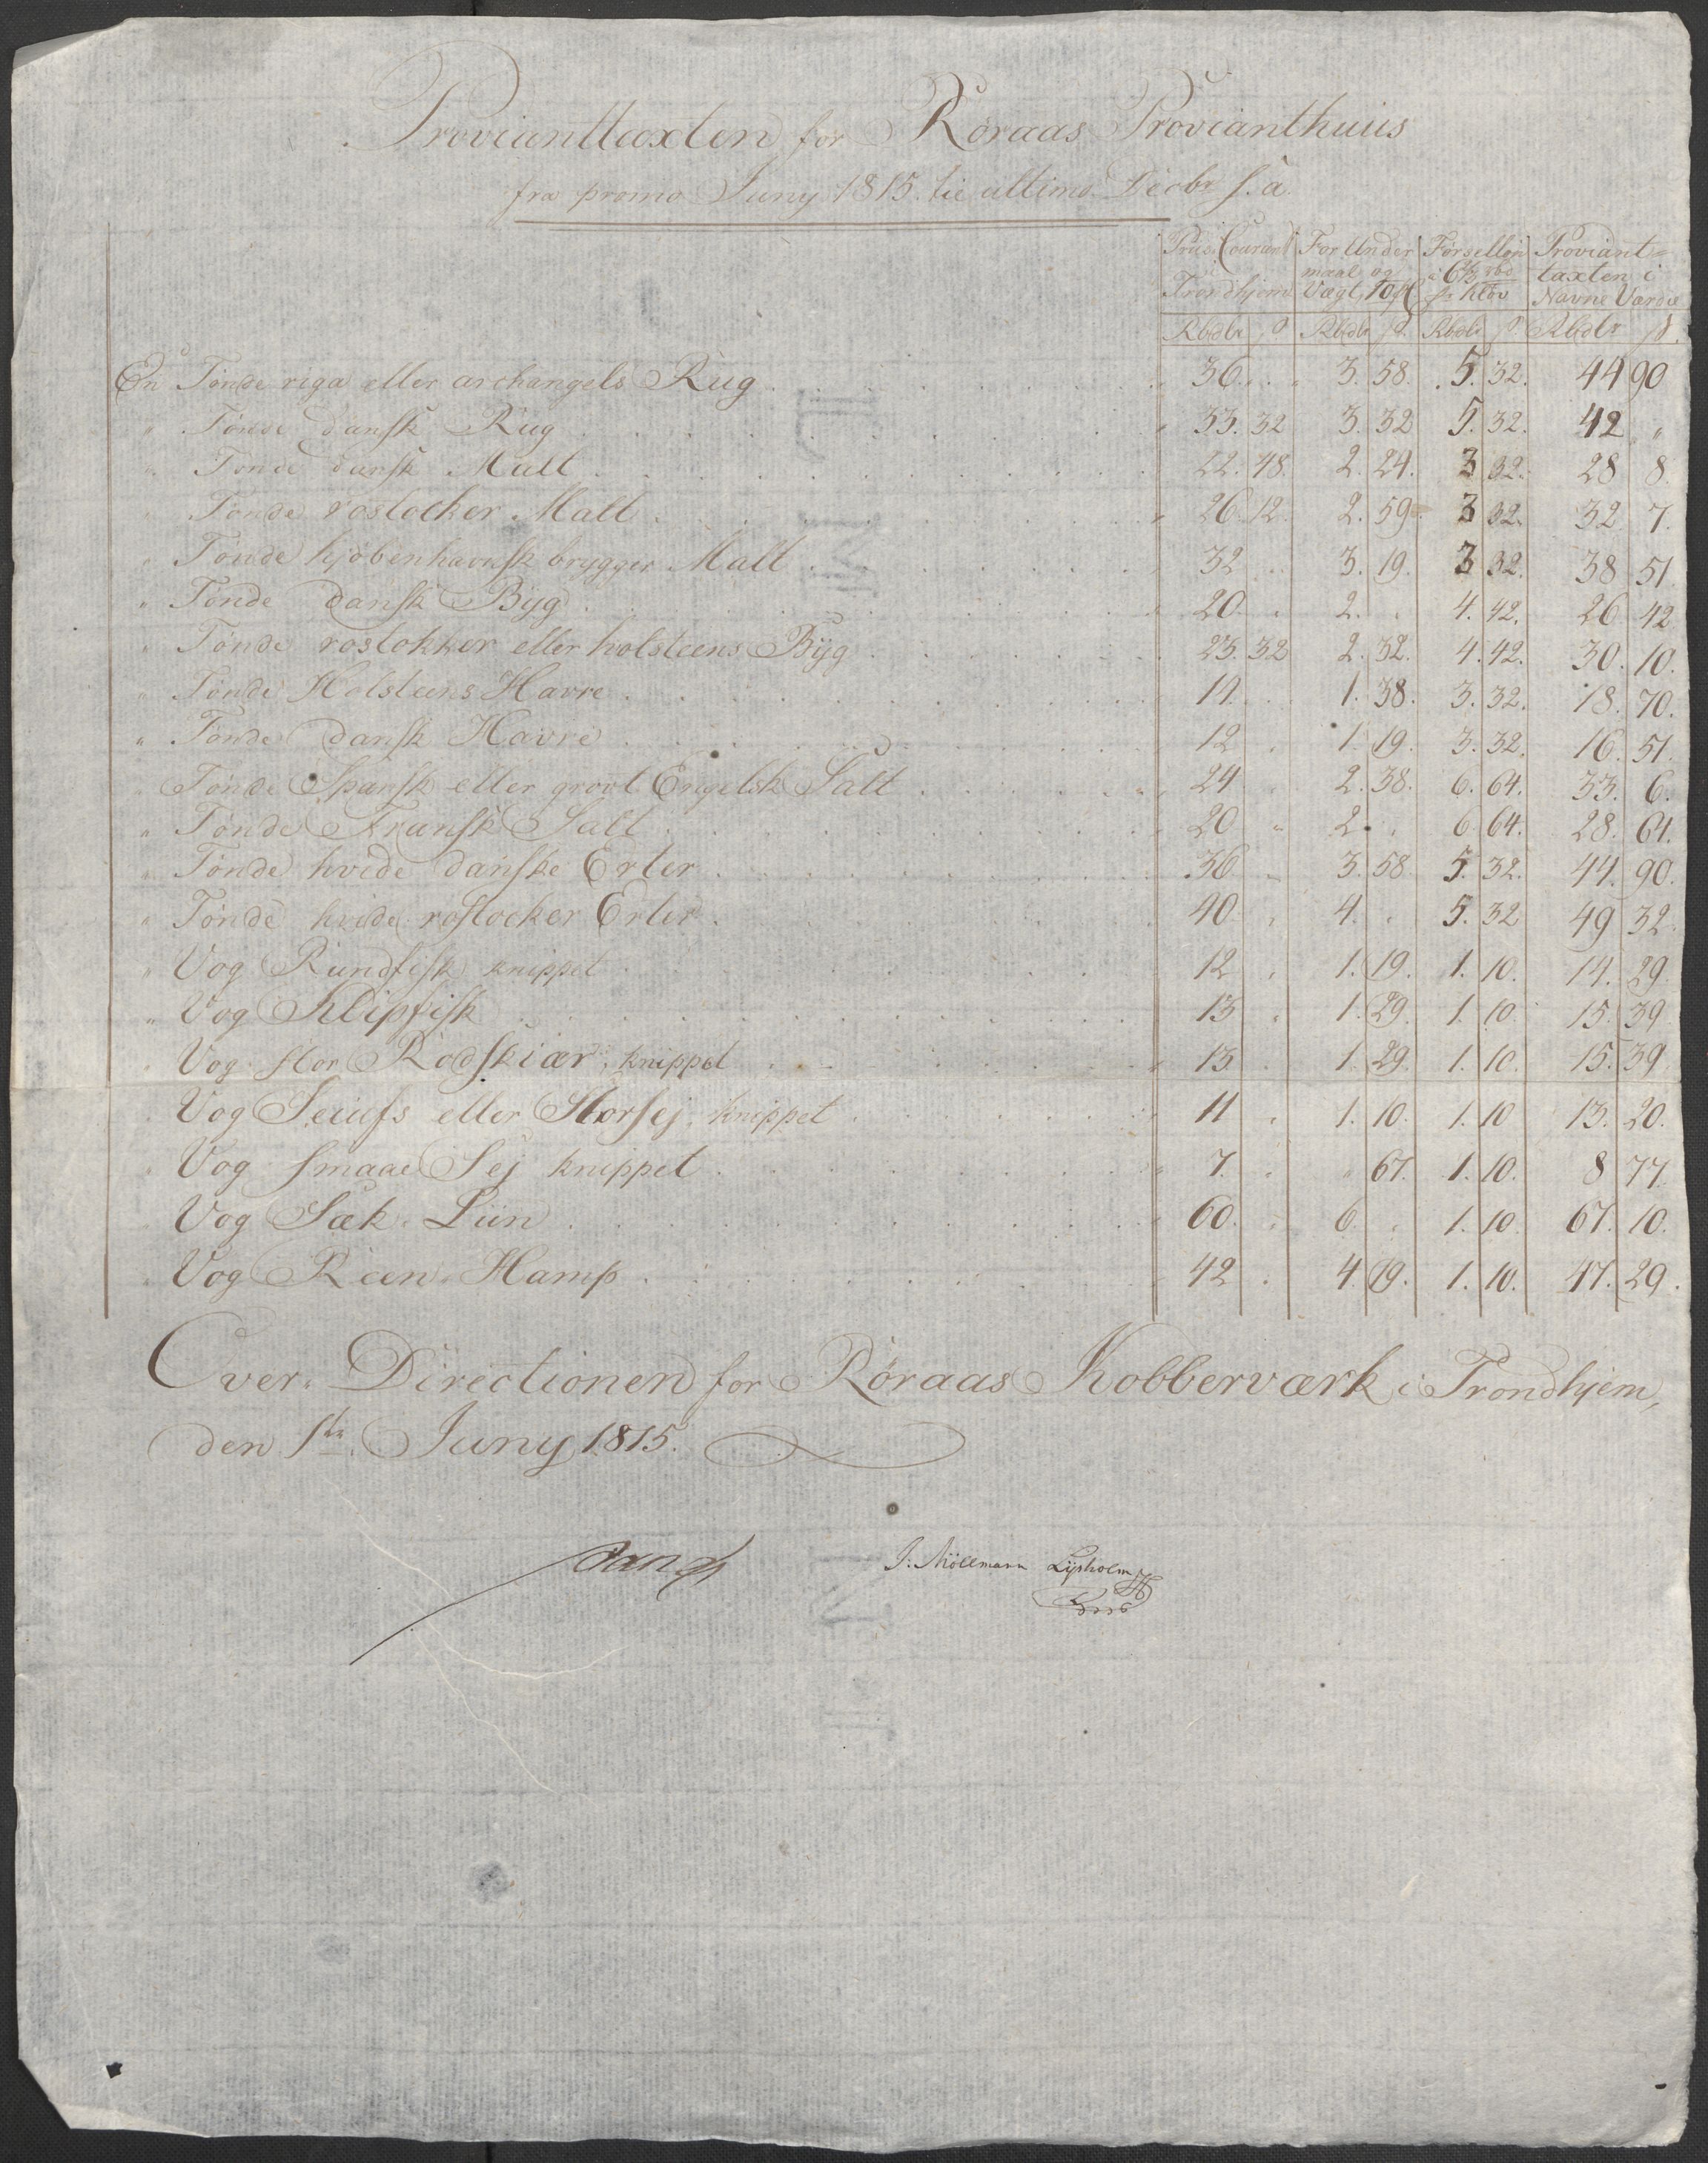 Provianttaxten for Röraas Provianthuus
fra promo Juny 1815. til ultimo Decbr s. a.
Priis Courant i Trondhjem | For Under maal og Vægt, 10 pC | Førselløn à 6 2/3 rbd pr Kløv | Proviant= taxten i Navne Værdie
Rbdlr ß | Rbdlr ß. | Rbdlr ß | Rbdlr ß.
En Tønde riga eller archangels Rug 36. " 3. 58. 5. 32. 44 90
" Tønde dansk Rug 33. 32 3. 32 5. 32. 42 "
" Tønde dansk Malt 22. 48. 2. 24. 3 32. 28 8.
" Tønde rostocker Malt 26. 12. 2. 59. 3 32. 32 7.
" Tønde kjöbenhavnsk brygger Malt 32 " 3. 19. 3 32. 38 51
" Tønde dansk Byg 20. " 2. " 4. 42. 26 42
" Tønde rostokker eller holsteens Byg 23. 32 2. 32. 4. 42. 30. 10.
" Tønde Holsteens Havre 14. " 1. 38. 3. 32. 18. 70.
" Tønde dansk Havre 12 " 1. 19. 3. 32. 16. 51.
" Tønde Spansk eller grovt Engelsk Salt 24 " 2. 38. 6. 64. 33. 6.
" Tønde Fransk Salt 20 " 2. " 6. 64. 28. 64.
" Tønde hvide danske Erter 36. " 3. 58. 5. 32. 44. 90.
" Tønde hvide rostocker Erter 40. " 4. " 5. 32 49 32
" Vog Rundfisk knippet 12 " 1. 19. 1. 10. 14. 29.
" Vog Klipfisk 13 " 1. 29. 1. 10. 15. 39
" Vog stor Rodskiær, knippet 13. " 1. 29. 1. 10. 15. 39
" Vog Seiufs eller Storsej, knippet 11 " 1. 10. 1. 10 13. 20.
" Vog smaae Sej knippet 7. " " 67. 1. 10. 8 77.
" Vog Sæk-Liin 60. " 6. " 1. 10. 67. 10.
" Vog Reen-Hamp 42 " 4. 19. 1. 10. 47. 29.
Over-Directionen for Røraas Kobberværk i Trondhjem,
den 1ste Juny 1815.
J: Möllmann Lysholm